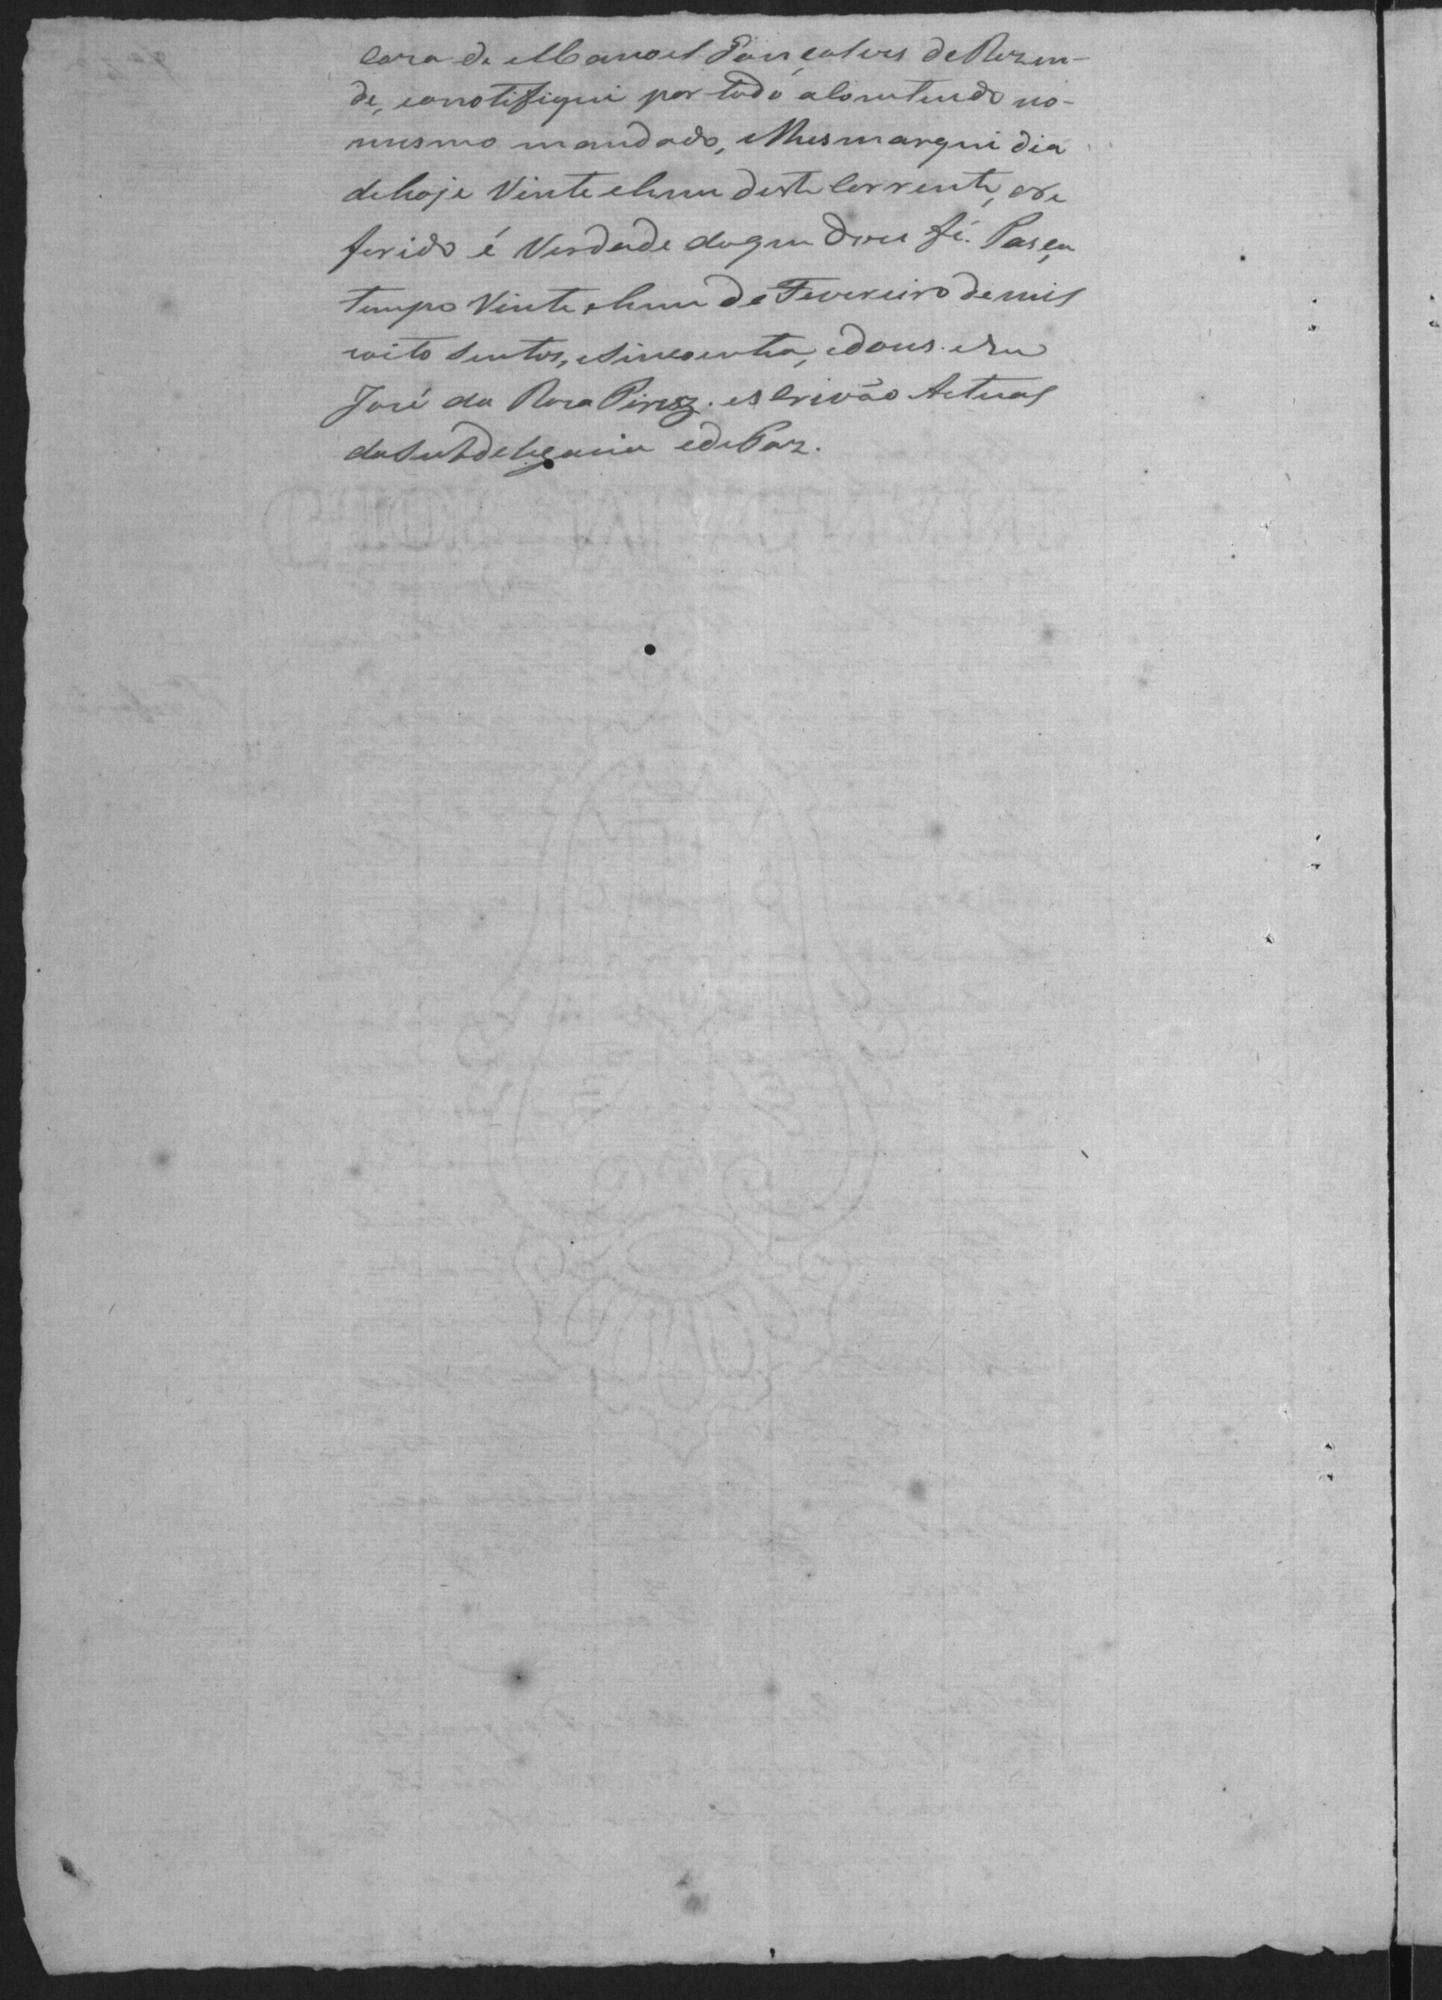 Caza de Manoel Gonçalves de Rezen-
de, eanotifiquei por todo aComteudo no-
mesmo mandado, elhesmarquei dia
dehoje Vinte ehum deste Corrente, ore
ferido é Verdade doque dou fé. Passa
tempo Vinte ehum de Fevereiro demil
oito Sentos, eSincoenta, edous. eEu
José da Roza Pirez. esCrivão Actual
daSubdelegacia edePaz.